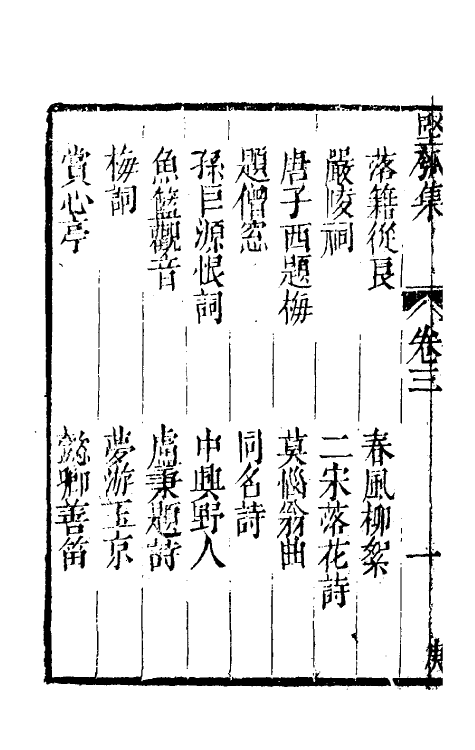 堅瓠集 卷三 一
落籍從良 春風柳絮
嚴陵祠 二宋落花詩
唐子西題梅 莫惱翁曲
題僧窓 同名詩
孫巨源恨詞 中興野人
魚籃觀音 盧秉題詩
梅詞 夢游玉京
賞心亭 懿卿善笛